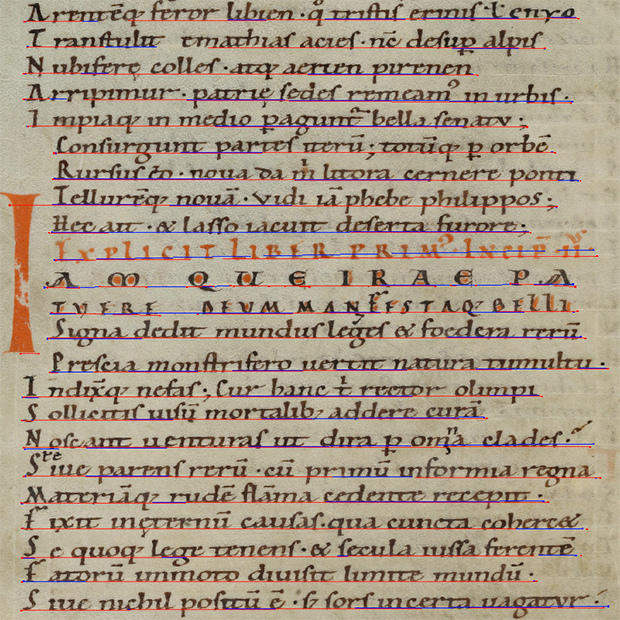 Arentēq feror libien · q̊ tristis erinis t̄ enyo
Transtulit emathias acies · nc̄ desup alpis
Nubiferę colles · atq aerien pirenen
Arripimur · patrię sedes remeam⁹ in urbis ·
Impiaq in medio pagunt᷑ bella senatu ;
Consurgunt partes iterū ; totūq p orbē
Rursus eo · noua da m̄ litora cernere ponti
Tellurēq nouā · vidi iā phebe philippos ;
Hec ait · & lasso iacuit deserta furore ;
EXPLICIT LIBER PRIM⁹ INCIP̄ II
IAM QUE IRAE PA
TVERE DEUM MANIFESTAQ BELLI
Signa dedit mundus leges & foedera rerū
Prescia monstrifero uertit natura tumultu ·
Indixq nefas ; Cur hanc t̄ rector olimpi
Sollicitis uisū mortalib; addere curā
Noscant uenturas ut dira p omīa clades ·
Siue parens rerū · cū primū informia regna
Materiāq rudē flāma cedente recepit ·
Fixit inęternū causas · qua cuncta coherc&
Se quoq lege tenens · & secula iussa ferentē
Fatorū immoto diuisit limite mundū ·
Siue nichil positū ē · s; sors incerta uagatur ·